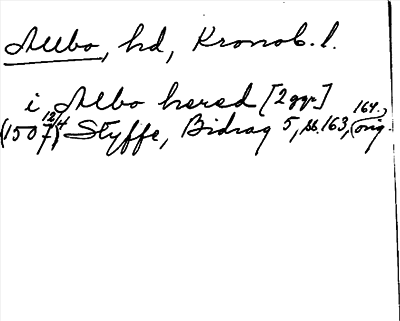 Allbo, hd, Kronob. l.
i Albo hered [2 ggr.]
(1507 12/4) Styffe, Bidrag 5, ss. 163, 164, (orig.